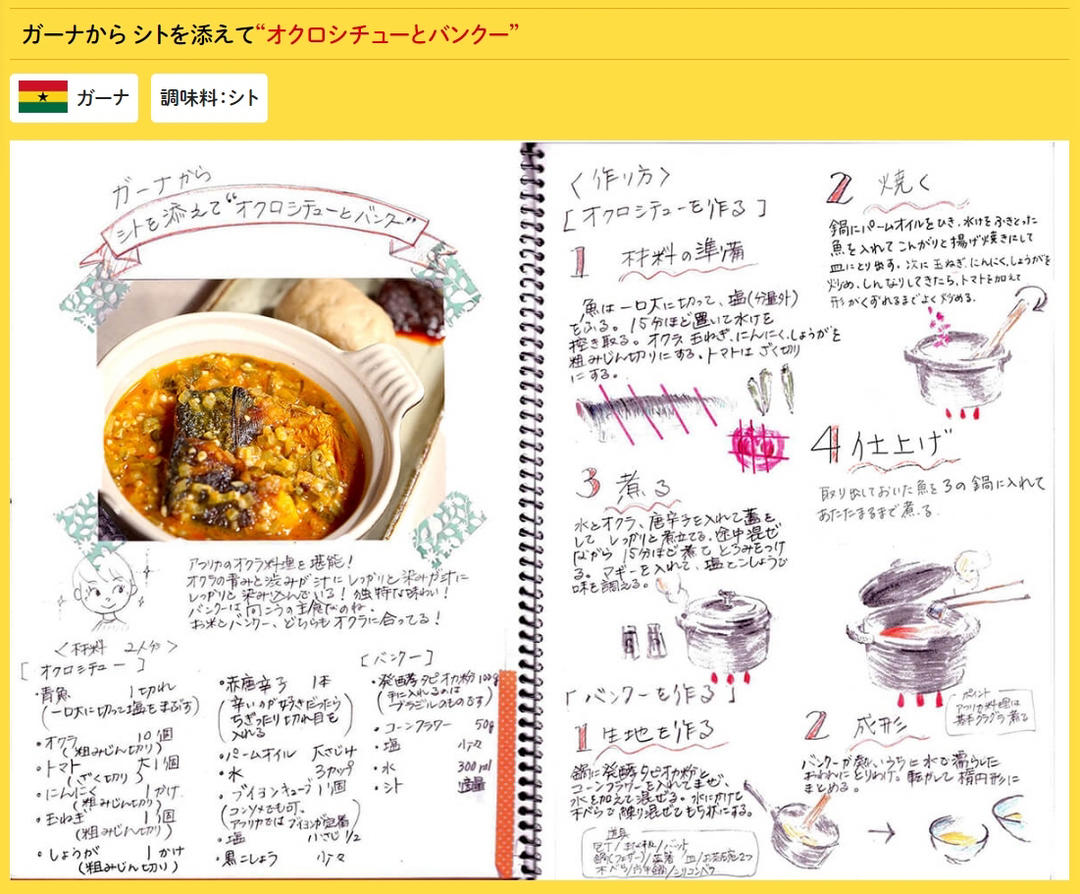 ガーナから シトを添えて“オクロシチューとバンクー”
ガーナ
調味料：シト
ガーナから
シトを添えて“オクロシチューとバンクー”
アフリカのオクラ料理を堪能！
オクラの青みと渋みが汁にしっかりと染みが汁に
しっかりと染み込んでいる！独特な味わい！
バンクーは向こうの主食なのね。
お米とバンクー、どちらもオクラに合ってる！
<材料 2人分>
[オクロシチュー]
・青魚 1切れ
(一口大に切って塩をまぶす)
・オクラ 10個
(粗みじん切り)
・トマト 大1個
(ざく切り)
・にんにく 1かけ
(粗みじん切り)
・玉ねぎ 1個
(粗みじん切り)
・しょうが 1かけ
(粗みじん切り)
・赤唐辛子 1本
(辛いのが好きだったら
ちぎったり切れ目を
入れる)
・パームオイル 大さじ4
・水 3カップ
・ブイヨンキューブ 1個
(コンソメでも可。
アフリカではブイヨンが定番)
・塩 小さじ1/2
・黒こしょう 少々
[バンクー]
・発酵タピオカ粉 100g
(手に入れるのは
ブラジルのものです)
・コーンフラワー 50g
・塩 少々
・水 300ml
・シト 適量
<作り方>
[オクロシチューを作る]
1 材料の準備
魚は一口大に切って、塩(分量外)
をふる。15分ほど置いて水けを
拭き取る。オクラ、玉ねぎ、にんにく、しょうがを
粗みじん切りにする。トマトはざく切り
にする。
2 焼く
鍋にパームオイルをひき、水けをふきとった
魚を入れてこんがりと揚げ焼きにして
皿にとり出す。次に玉ねぎ、にんにく、しょうがを
炒め、しんなりしてきたら、トマトを加えて
形がくずれるまでよく炒める。
3 煮る
水とオクラ、唐辛子を入れて蓋を
して しっかりと煮立てる。途中混ぜ
ながら 15分ほど煮て とろみをつけ
る。マギーを入れて、塩とこしょうで
味を調える。
4 仕上げ
取り出しておいた魚を3の鍋に入れて
あたたまるまで煮る。
ポイント
アフリカ料理は
基本グラグラ煮て
「バンクーを作る」
1 生地を作る
鍋に発酵タピオカ粉と
コーンフラワーを入れてまぜ、
水を加えて混ぜる。火にかけて
木べらで練り混ぜてもち状にする。
道具
包丁/まな板/バット
木べら/片手鍋/シリコンベラ
2 成形
バンクーが熱いうちに水で濡らした
おわんにとりわけ。転がして楕円形に
まとめる。